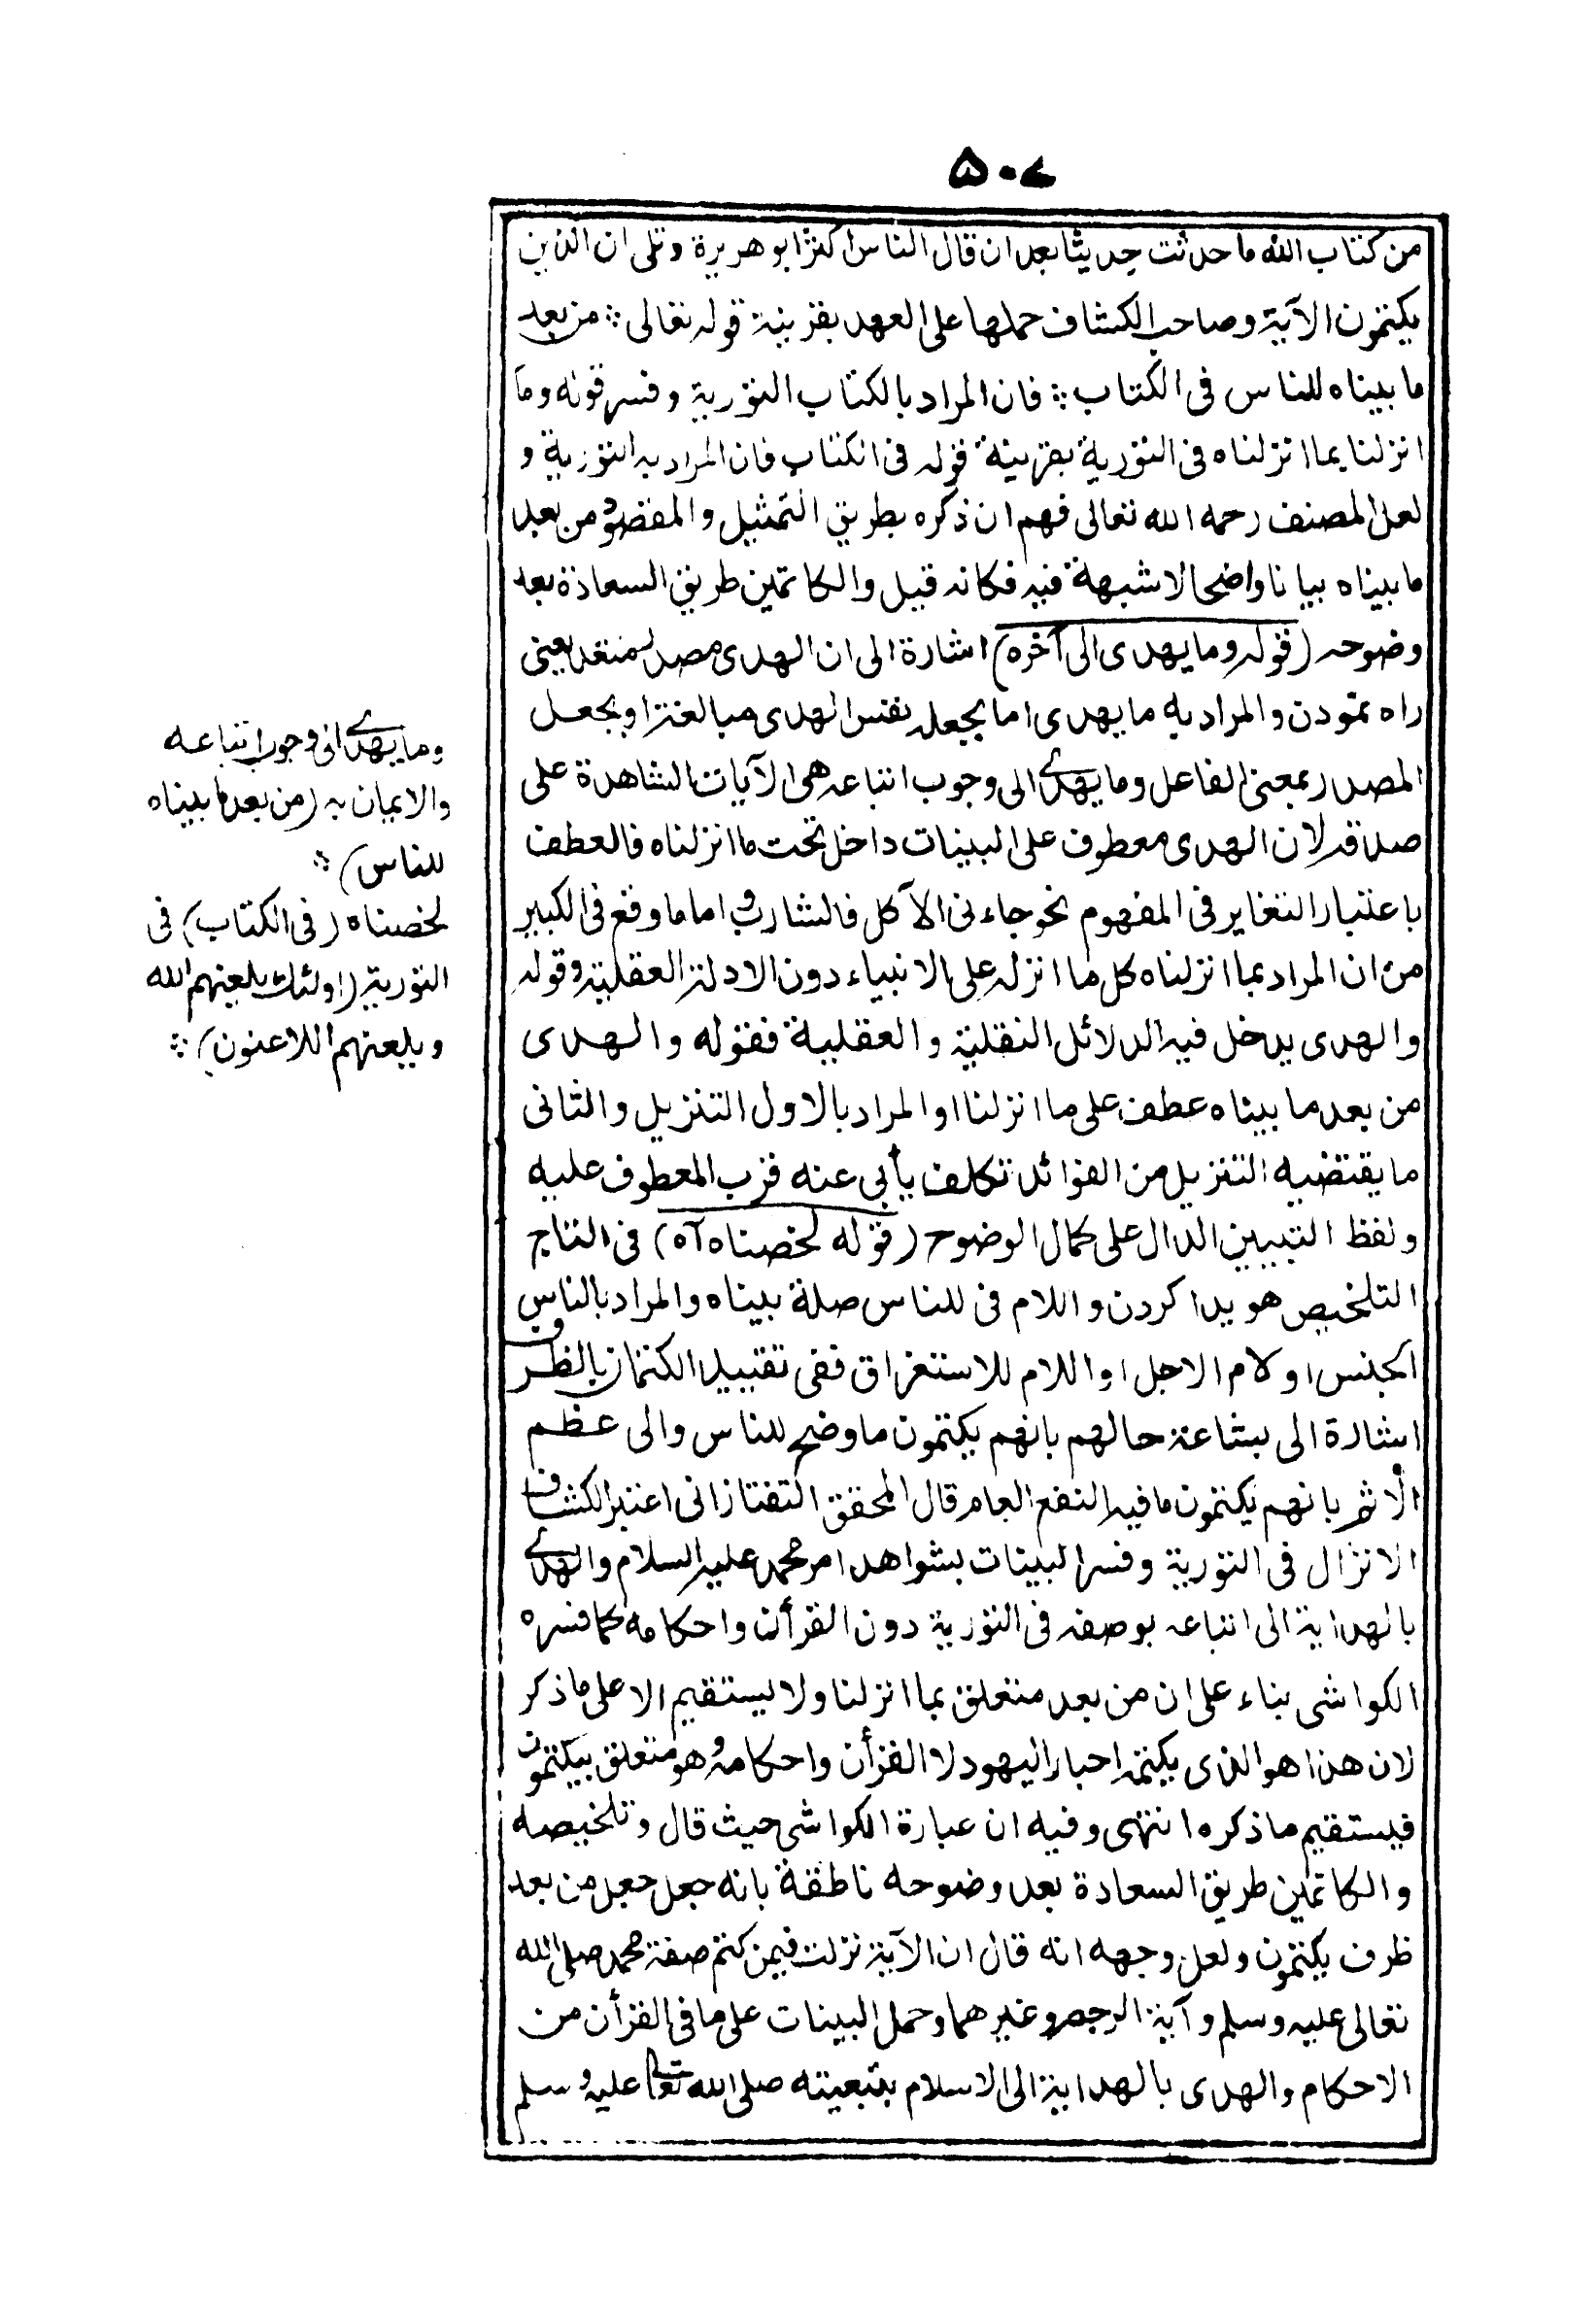 ۵۰۷
من كتاب الله ما حدثت حديثا بعد ان قال الناس اكثر ابو هريرة وتلى ان الذين
يكتمون الآية وصاحب الكشاف حملها على العهد بقرينة قوله تعالى ؞ من بعد
ما بيناه للناس فى الكتاب ؞ فان المراد بالكتاب التورية وفسر قوله وما
انزلنا بما انزلناه فى التورية بقرينة قوله فى الكتاب فان المراد به التورية و
لعل المصنف رحمه الله تعالى فهم ان ذكره بطريق التمثيل والمقصود من بعد
ما بيناه بيانا واضحا لا شبهة فيه فكانه قيل والكاتمين طريق السعادة بعد
وضوحه (قوله وما يهدى الى آخره) اشارة الى ان الهدى مصدر متعد يعنى
راه نمودن والمراد به ما يهدى اما بجعله نفس الهدى مبالغة او بجعل
المصدر بمعنى الفاعل وما يهدى الى وجوب اتباعه هى الآيات الشاهدة على
صدقه لان الهدى معطوف على البينات داخل تحت ما انزلناه فالعطف
باعتبار التغاير فى المفهوم نحو جاءنى الآكل فالشارب واما ما وقع فى الكبير
من ان المراد بما انزلناه كل ما انزله على الانبياء دون الادلة العقلية وقوله
والهدى يدخل فيه الدلائل النقلية والعقلية فقوله والهدى
من بعد ما بيناه عطف على ما انزلنا او المراد بالاول التنزيل والثانى
ما يقتضيه التنزيل من الفوائد تكلف يأبى عنه قرب المعطوف عليه
ولفظ التبيين الدال على كمال الوضوح (قوله لخصناه آه) فى التاج
التلخيص هويدا كردن واللام فى للناس صلة بيناه والمراد بالناس
الجنس او لام الاجل او اللام للاستغراق ففى تقييد الكتمان بالظرف
اشارة الى بشاعة حالهم بانهم يكتمون ما وضح للناس والى عظم
الأثم بانهم يكتمون ما فيه النفع العام قال المحقق التفتازانى اعتبر الكشاف
الانزال فى التورية وفسر البينات بشواهد امر محمد عليه السلام والهدى
بالهداية الى اتباعه بوصفه فى التورية دون القرأن واحكامه كما فسره
الكواشى بناء على ان من بعد متعلق بما انزلنا ولا يستقيم الا على ما ذكر
لان هذا هو الذى يكتمه احبار اليهود لا القرأن واحكامه وهو متعلق بيكتمون
فيستقيم ما ذكره انتهى وفيه ان عبارة الكواشى حيث قال وتلخيصه
والكاتمين طريق السعادة بعد وضوحه ناطقة بانه جعل جعل من بعد
ظرف يكتمون ولعل وجهه انه قال ان الآية نزلت فيمن كتم صفة محمد صلى الله
تعالى عليه وسلم وآية الرجم وغيرهما وحمل البينات على ما فى القرأن من
الاحكام والهدى بالهداية الى الاسلام بتبعيته صلى الله تعا عليه وسلم
وما يهدى الى وجوب اتباعه
والايمان به (من بعد ما بيناه
للناس) ؞
لخصناه (فى الكتاب) فى
التورية (اولئك يلعنهم الله
ويلعنهم اللاعنون) ؞